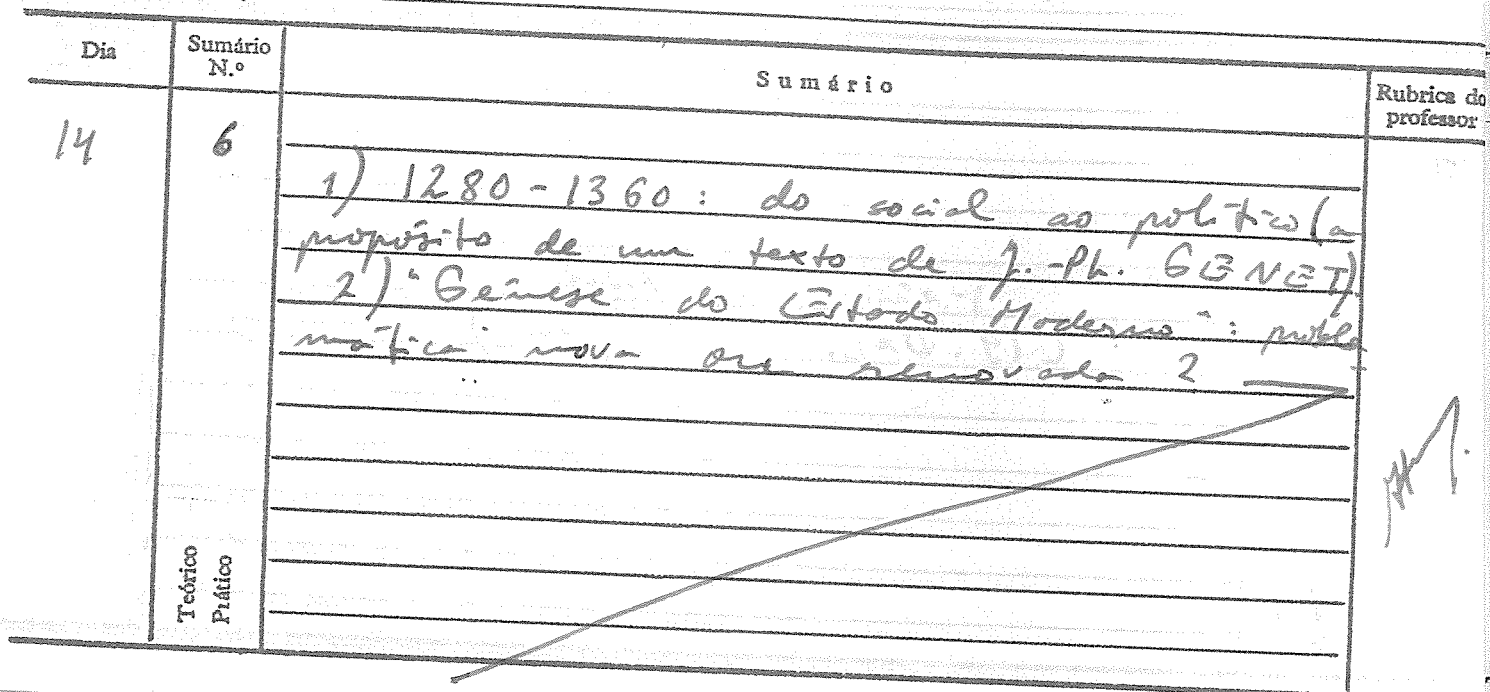 Dia
Sumário
N.º
Sumário
Rubrica do
professor
14
6
1) 1280-1360: do social ao político (a
propósito de um texto de J.-Ph. GENET).
2) "Génese do Estado Moderno": proble-
mática nova ou renovada?
Teórico
Prático